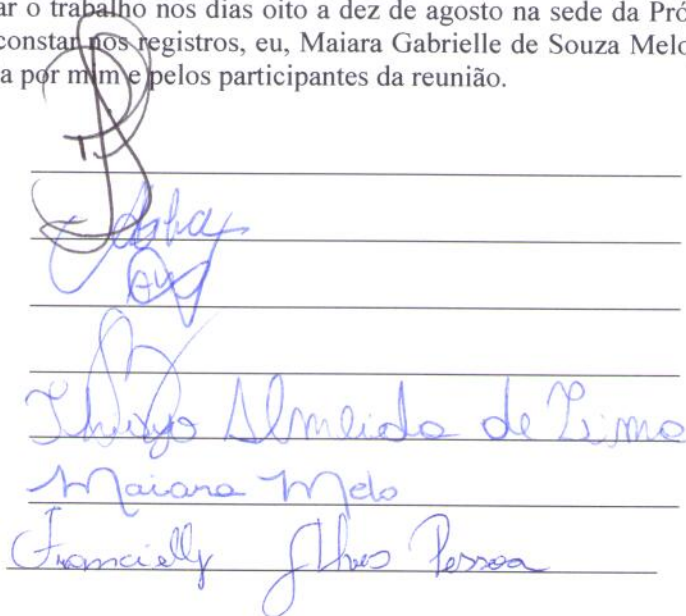 ar o trabalho nos dias oito a dez de agosto na sede da Pró
constar nos registros, eu, Maiara Gabrielle de Souza Melo
a por mim e pelos participantes da reunião.
Thiago Almeida de Lima
Maiara Melo
Francielly Alves Pessoa